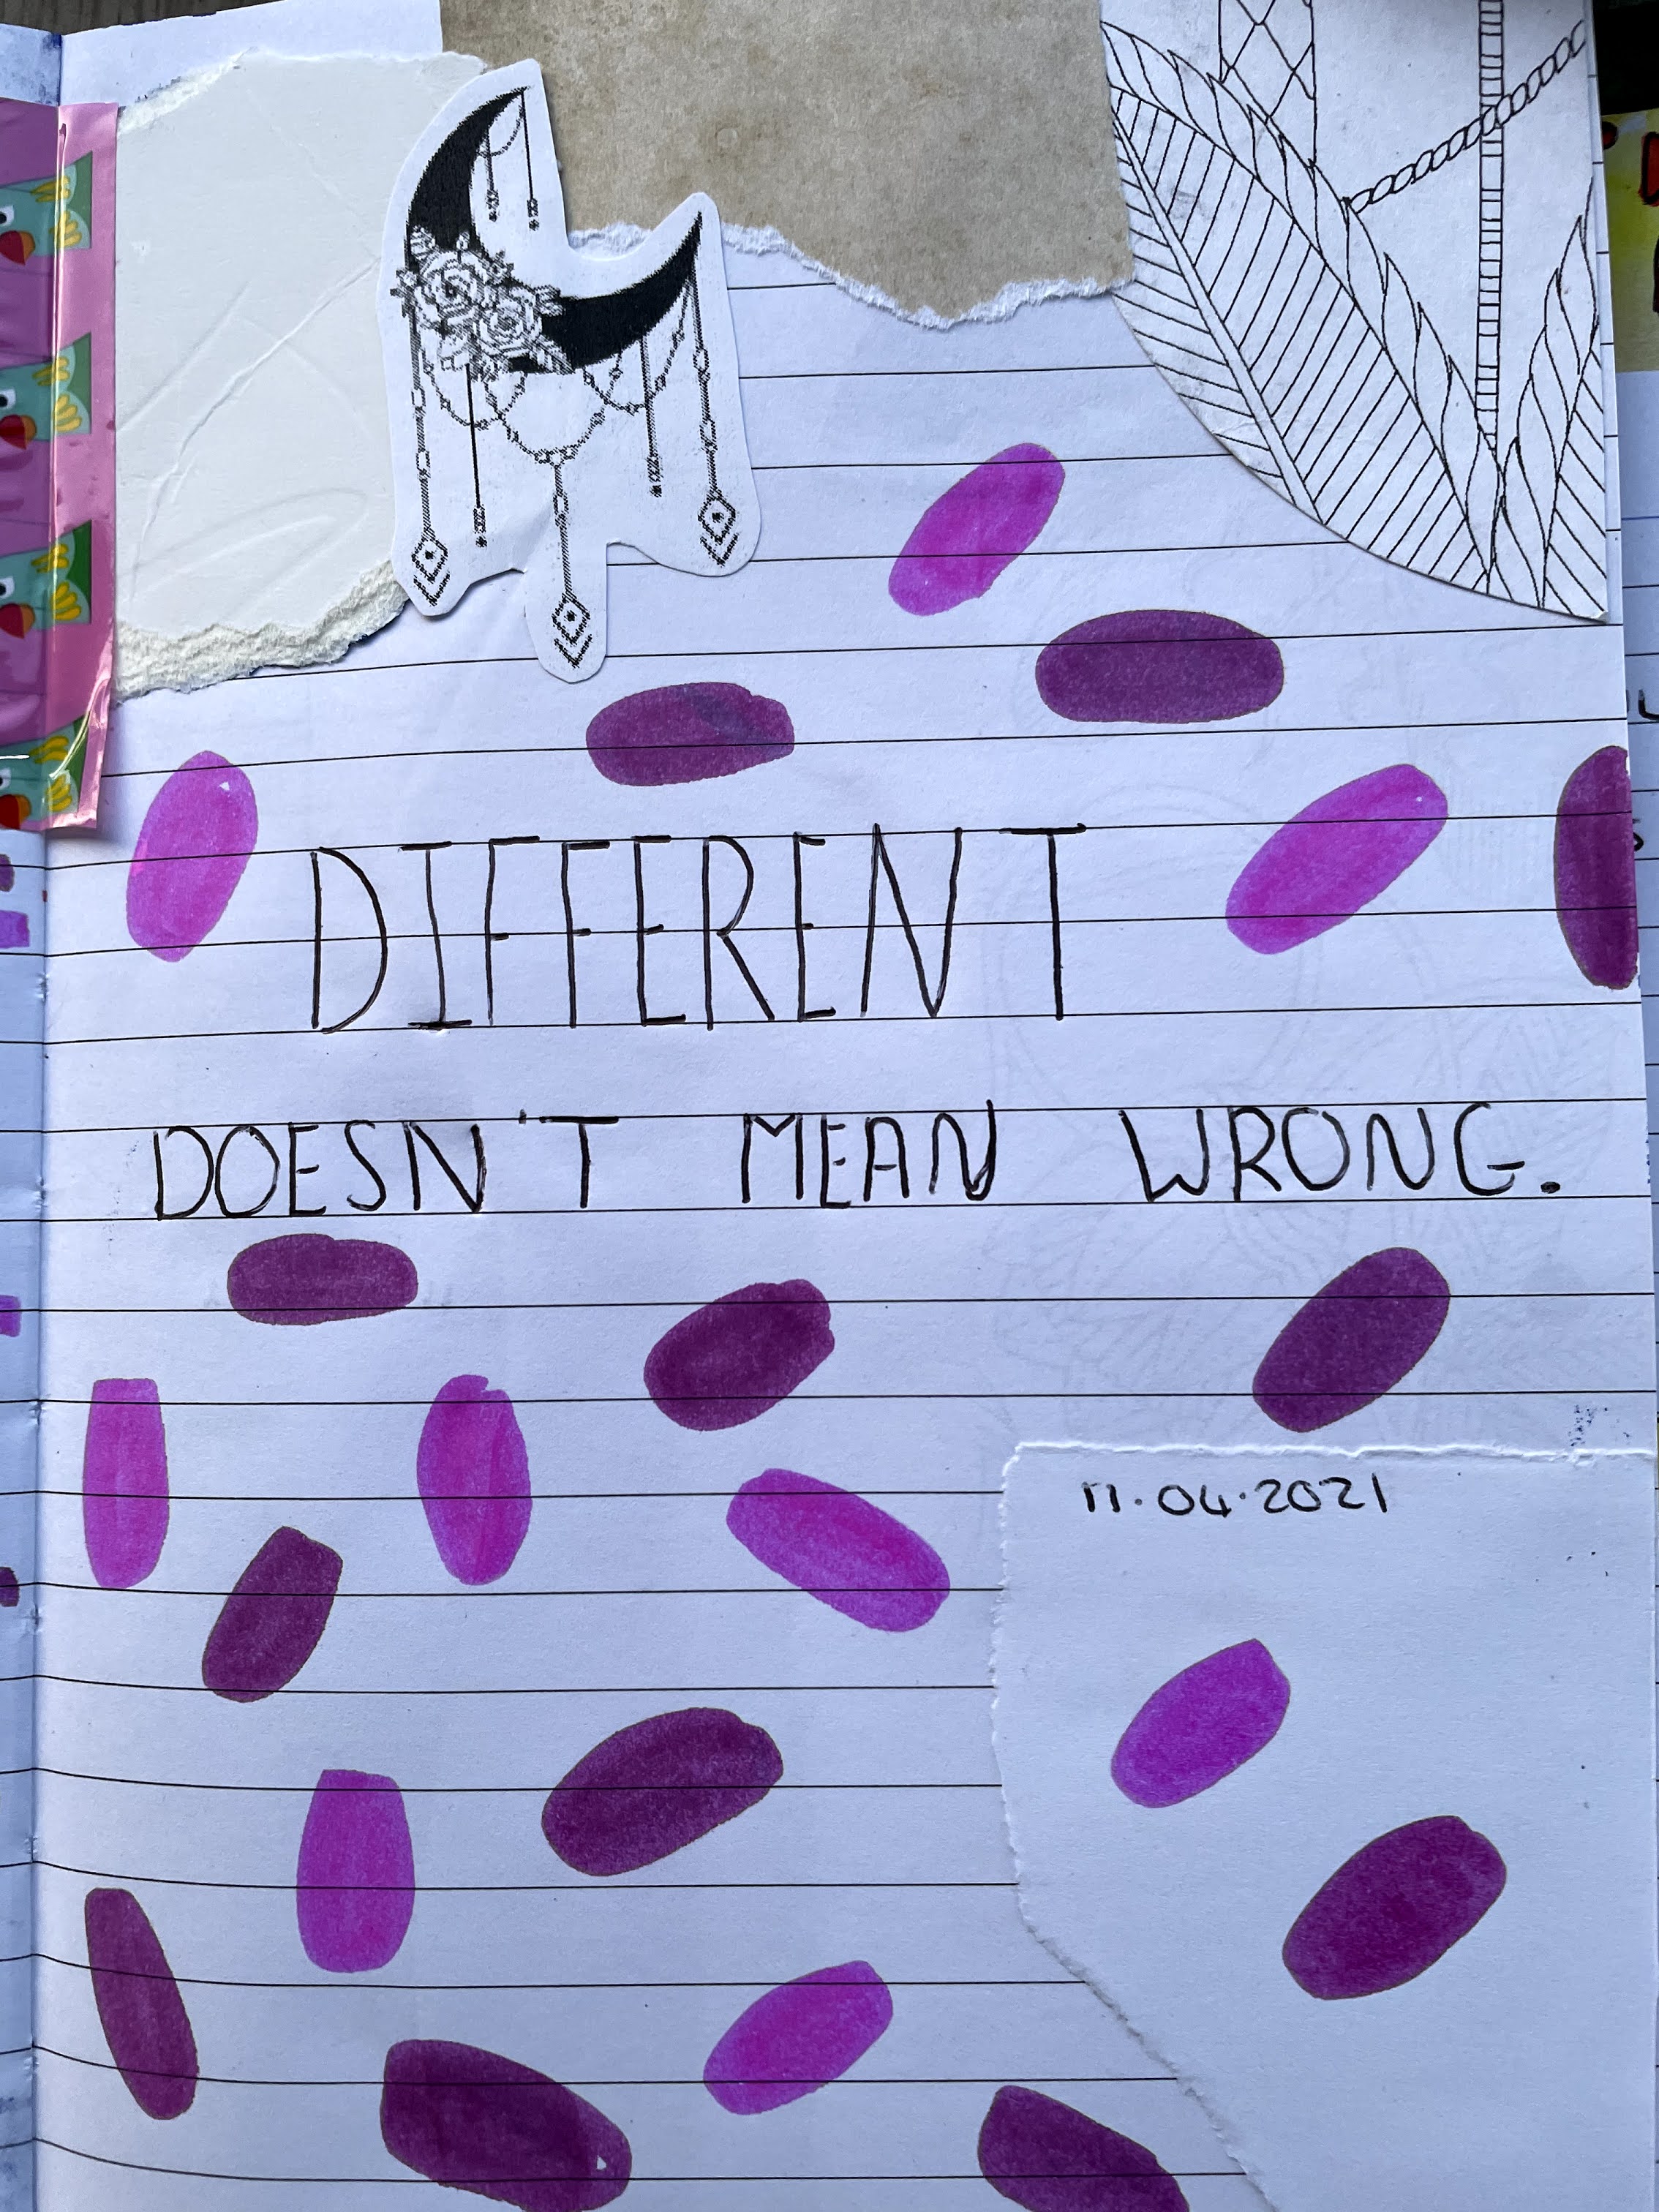 DIFFERENT
DOESN'T MEAN WRONG.
11.04.2021